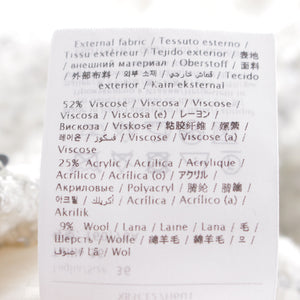 External fabric / Tessuto esterno /
Tissu extérieur / Tejido exterior / 表地
/ внешний материал / Oberstoff / 面料
/ 外部布料 / 외부 소재 / قماش خارجي / Tecido
exterior / Kain eksternal
52% Viscose / Viscosa / Viscose /
Viscosa / Viscosa (e) / レーヨン /
Вискоза / Viskose / 粘胶纤维 / 嫘縈 /
레이온 / فسكوز / Viscose / Viscose (a) /
Viscose
25% Acrylic / Acrilica / Acrylique /
Acrílico / Acrílica (o) / アクリル /
Акриловые / Polyacryl / 腈纶 / 腈綸 /
아크릴 / أكريلك / Acrílico / Acrílico (a) /
Akrilik
9% Wool / Lana / Laine / Lana / 毛 /
Шерсть / Wolle / 绵羊毛 / 綿羊毛 / 모 /
صوف / Lã / Wol
36